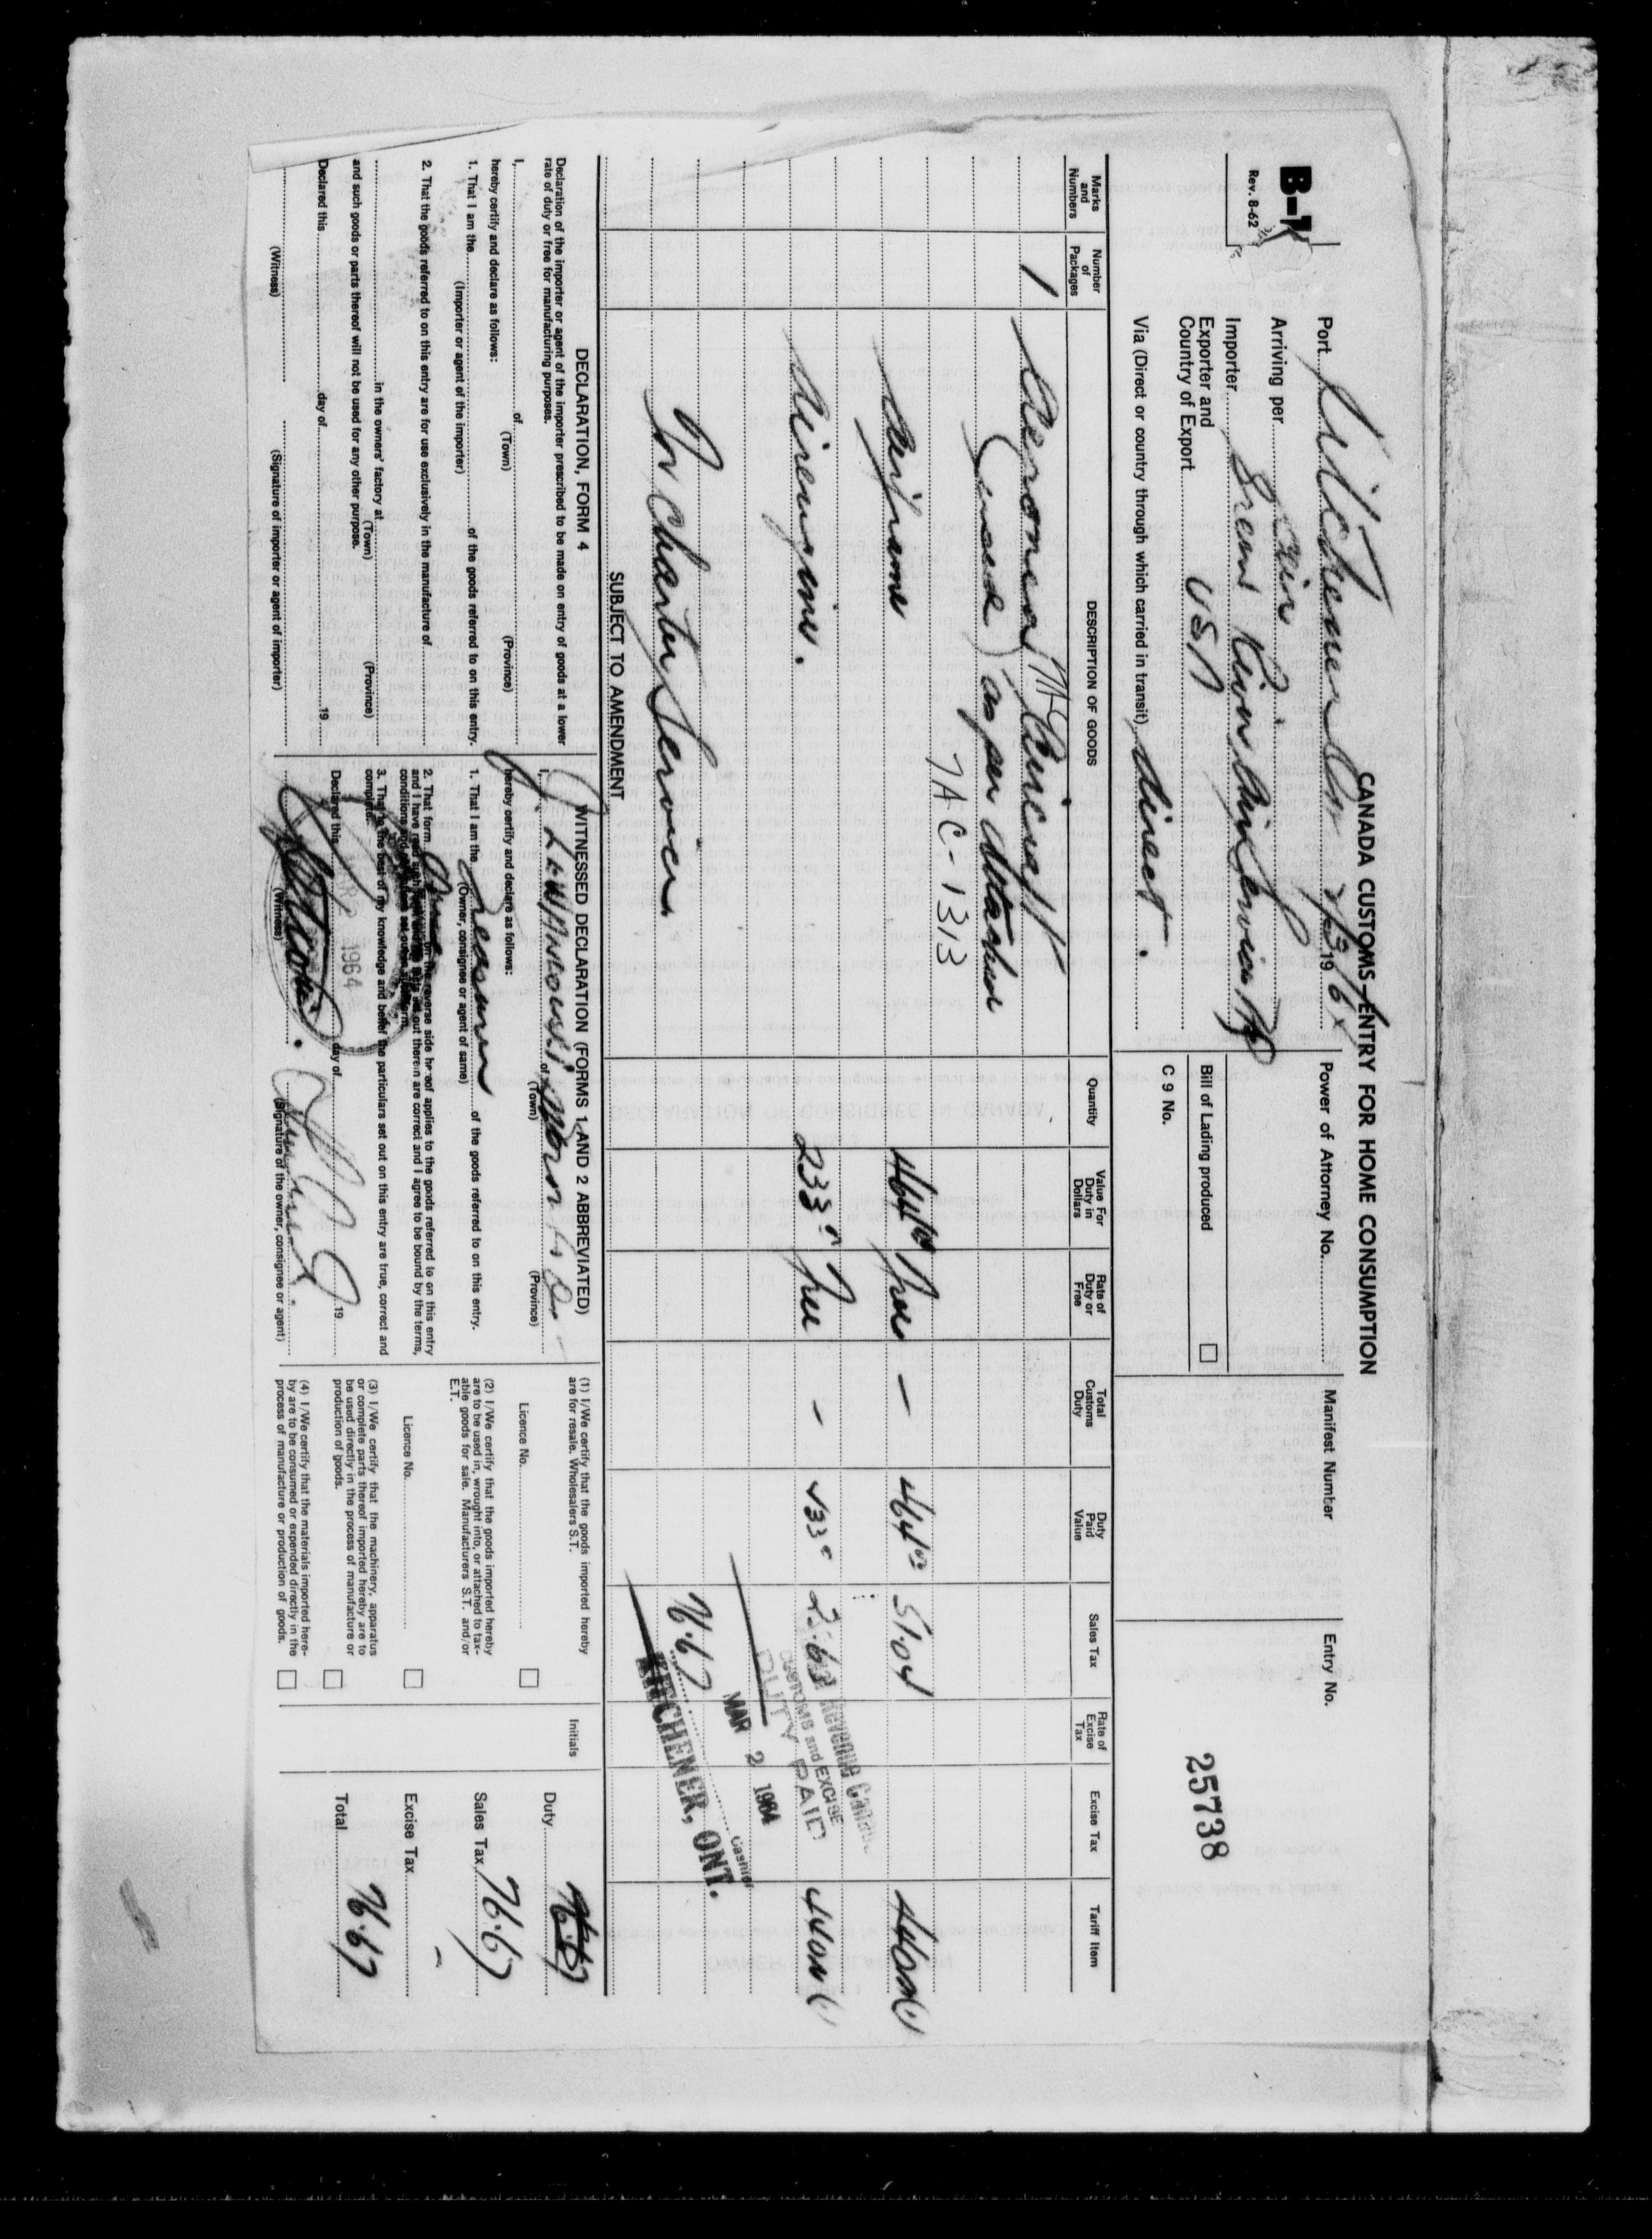 CANADA CUSTOMS—ENTRY FOR HOME CONSUMPTION
B-1
Rev. 8-62
Port Kitchener Ont 2/3 19 64
Power of Attorney No.
Manifest Number
Entry No.
Arriving per Air
Importer Grand River Air Services
Exporter and
Country of Export USA
Bill of Lading produced
25738
Via (Direct or country through which carried in transit) direct.
C 9 No.
Marks and Numbers
Number of Packages
DESCRIPTION OF GOODS
Quantity
Value For Duty in Dollars
Rate of Duty or Free
Total Customs Duty
Duty Paid Value
Sales Tax
Rate of Excise Tax
Excise Tax
Tariff Item
1 Aeronca 7AC Aircraft
(used) as per attached
7AC-1313
Airframe 464 00 Free — 464 00 51 04 440m(1)
Airengine. 233 Free — 233 25.63
Revenue Canada
CUSTOMS and EXCISE
DUTY PAID
MAR 2 1964
Cashier
KITCHENER, ONT.
for Charter Services
76.67
SUBJECT TO AMENDMENT
DECLARATION, FORM 4
Declaration of the importer or agent of the importer prescribed to be made on entry of goods at a lower
rate of duty or free for manufacturing purposes.
I, of
(Town) (Province)
hereby certify and declare as follows:
1. That I am the of the goods referred to on this entry.
(Importer or agent of the importer)
2. That the goods referred to on this entry are for use exclusively in the manufacture of
in the owners' factory at
(Town) (Province)
and such goods or parts thereof will not be used for any other purpose.
Declared this day of 19
(Witness) (Signature of importer or agent of importer)
WITNESSED DECLARATION (FORMS 1 AND 2 ABBREVIATED)
I, of
(Town) (Province)
hereby certify and declare as follows:
1. That I am the of the goods referred to on this entry.
(Owner, consignee or agent of same)
2. That form on the reverse side hereof applies to the goods referred to on this entry
and I have out therein are correct and I agree to be bound by the terms,
conditions
3. That to the best of my knowledge and belief the particulars set out on this entry are true, correct and
complete.
Declared this 1964 day of 19
(Witness) (Signature of the owner, consignee or agent)
(1) I/We certify that the goods imported hereby
are for resale. Wholesalers S.T.
Licence No.
(2) I/We certify that the goods imported hereby
are to be used in, wrought into, or attached to tax-
able goods for sale. Manufacturers S.T. and/or
E.T.
Licence No.
(3) I/We certify that the machinery, apparatus
or complete parts thereof imported hereby are to
be used directly in the process of manufacture or
production of goods.
(4) I/We certify that the materials imported here-
by are to be consumed or expended directly in the
process of manufacture or production of goods.
Initials
Duty
Sales Tax 76.67
Excise Tax —
Total 76.67